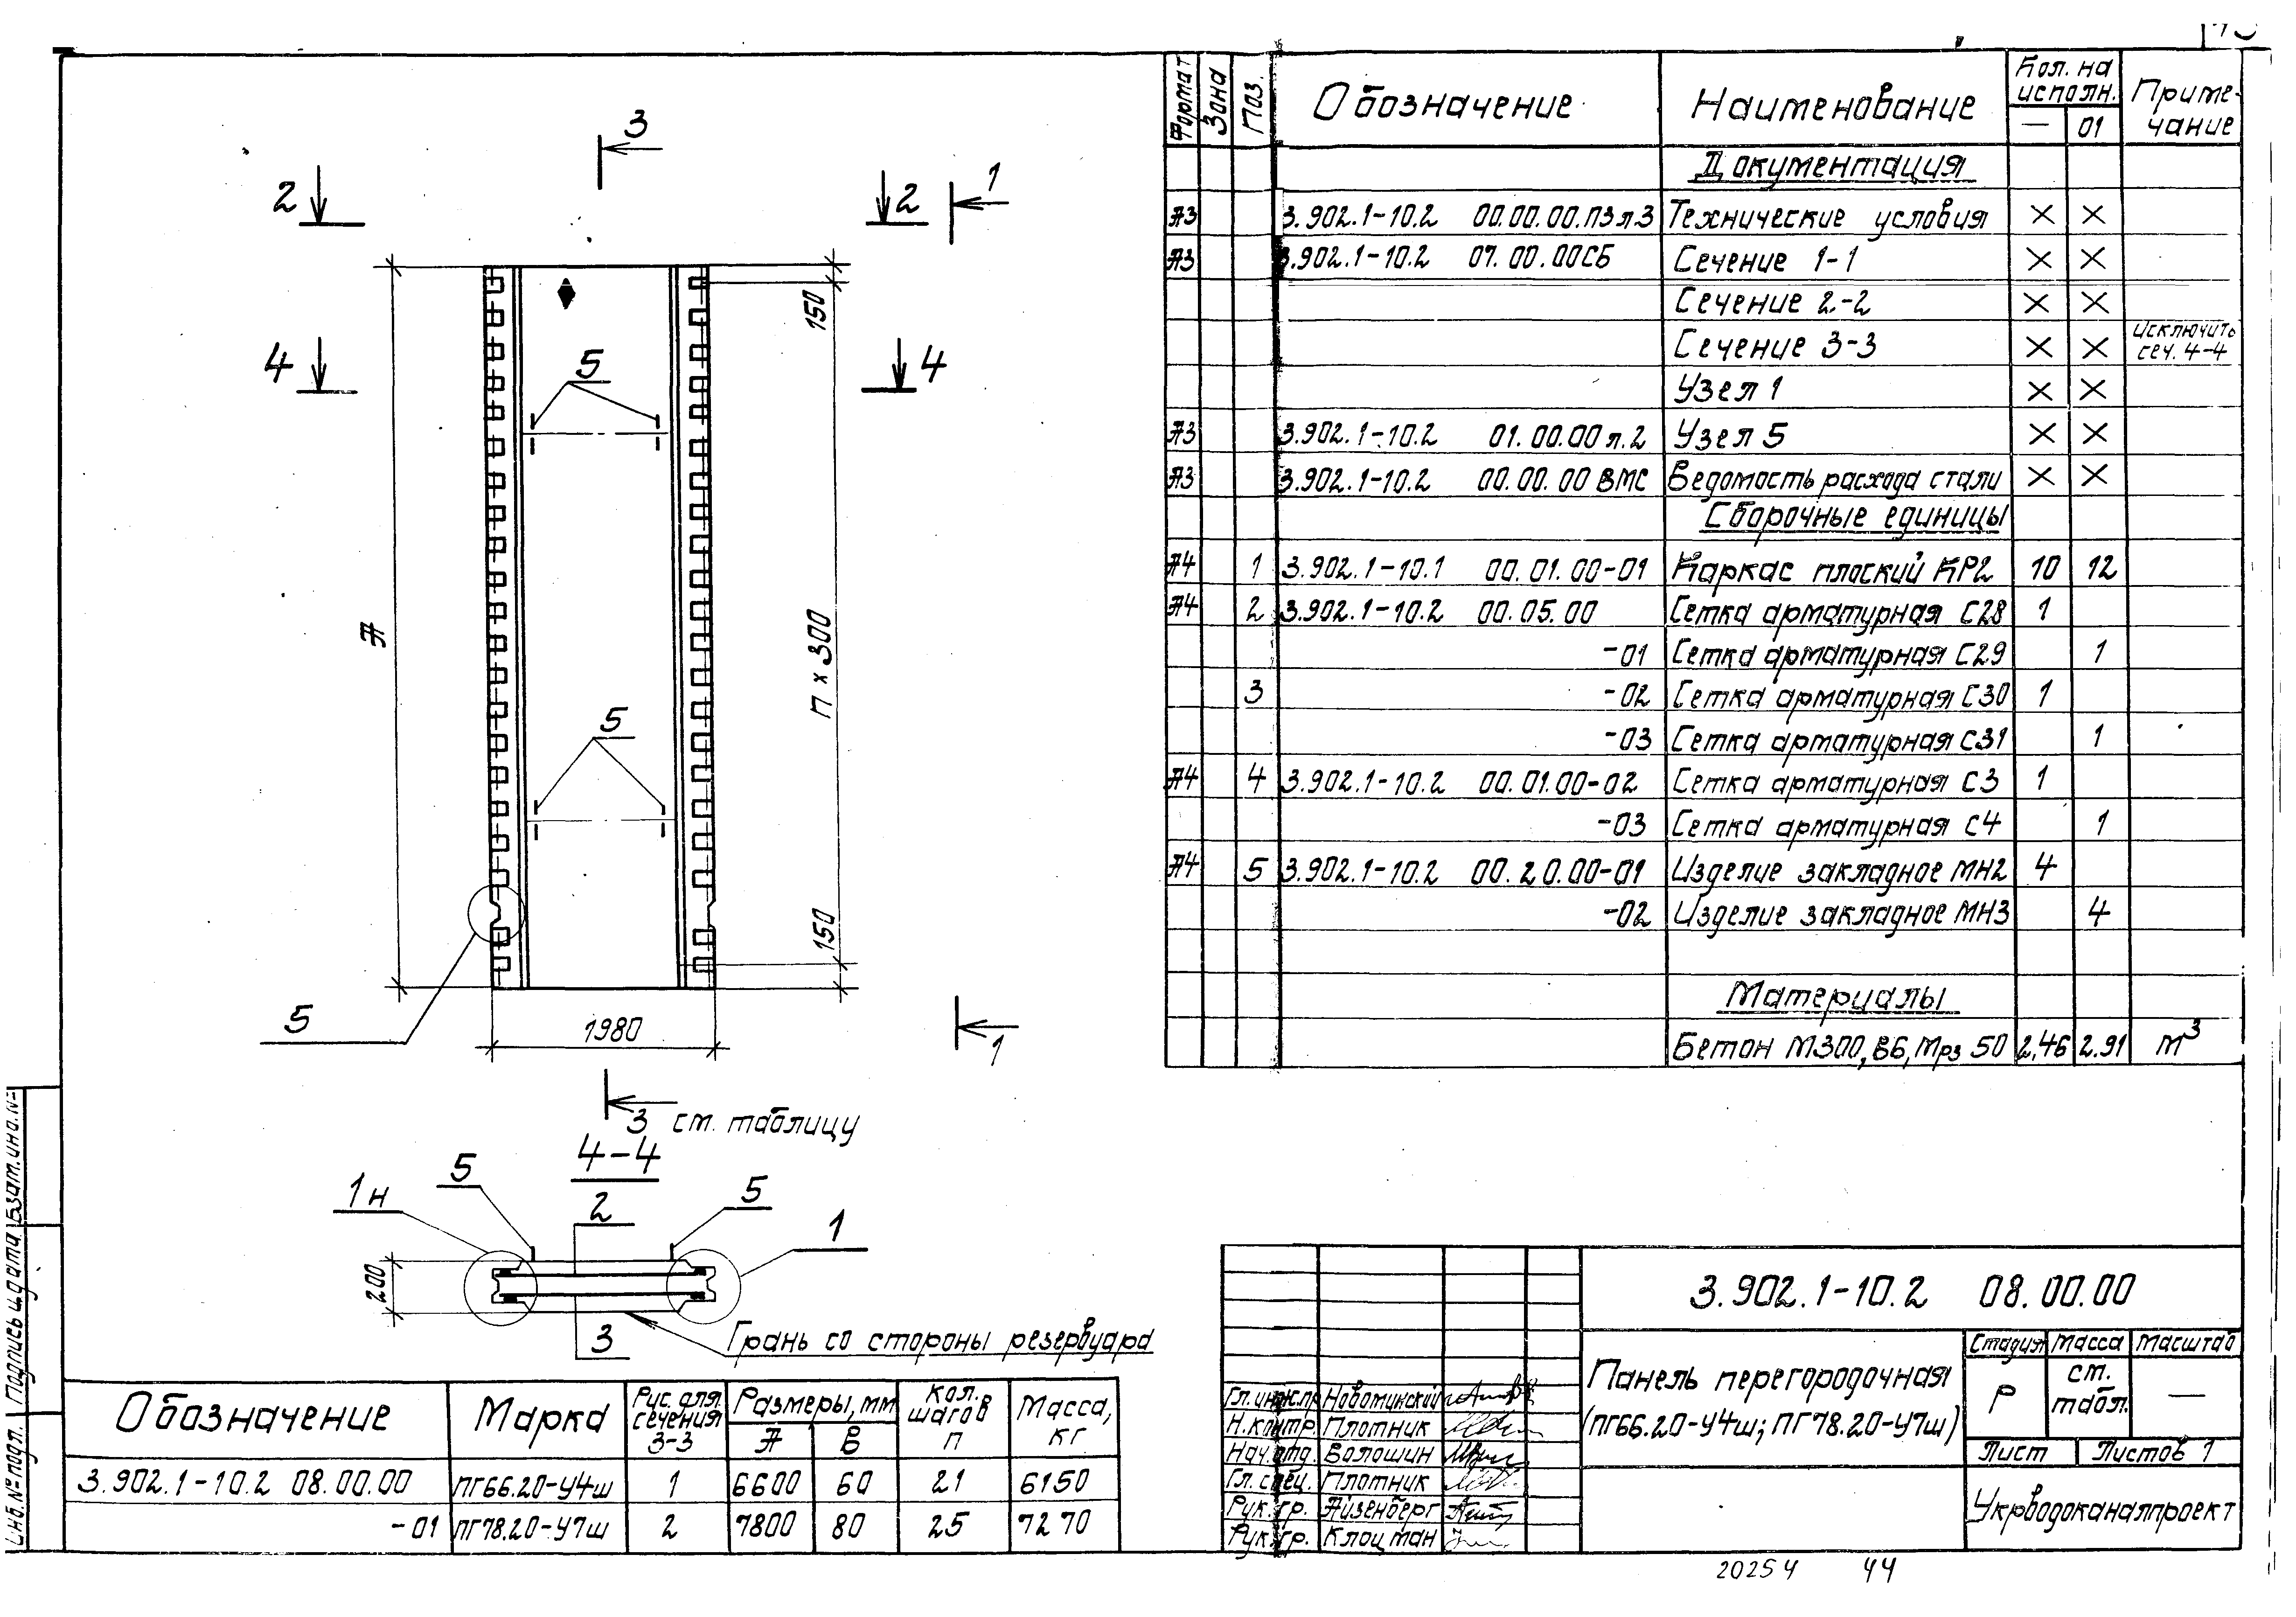 3
2
2
1
4
4
5
А
150
п х 300
5
150
5
1980
1
3 см. таблицу
4-4
1н
5
2
5
1
200
3
Грань со стороны резервуара
Формат
Зона
Поз.
Обозначение
Наименование
Кол. на исполн.
— 01
Примечание
Документация
А3 3.902.1-10.2 00.00.00.ПЗ л3 Технические условия × ×
А3 3.902.1-10.2 07.00.00СБ Сечение 1-1 × ×
Сечение 2-2 × ×
Сечение 3-3 × × исключить сеч. 4-4
Узел 1 × ×
А3 3.902.1-10.2 01.00.00 л.2 Узел 5 × ×
А3 3.902.1-10.2 00.00.00 ВМС Ведомость расхода стали × ×
Сборочные единицы
А4 1 3.902.1-10.1 00.01.00-01 Каркас плоский КР2 10 12
А4 2 3.902.1-10.2 00.05.00 Сетка арматурная С28 1
-01 Сетка арматурная С29 1
3 -02 Сетка арматурная С30 1
-03 Сетка арматурная С31 1
А4 4 3.902.1-10.2 00.01.00-02 Сетка арматурная С3 1
-03 Сетка арматурная С4 1
А4 5 3.902.1-10.2 00.20.00-01 Изделие закладное МН2 4
-02 Изделие закладное МН3 4
Материалы
Бетон М300, В6, Мрз 50 2,46 2.91 м³
Обозначение
Марка
Рис. для сечения 3-3
Размеры, мм
А В
Кол. шагов п
Масса, кг
3.902.1-10.2 08.00.00 ПГ66.20-У4ш 1 6600 60 21 6150
-01 ПГ78.20-У7ш 2 7800 80 25 7270
3.902.1-10.2 08.00.00
Панель перегородочная
(ПГ66.20-У4ш; ПГ78.20-У7ш)
Стадия Масса Масштаб
Р см. табл. —
Лист Листов 1
Укрводоканалпроект
Гл. инж.пр Новоминский
Н.контр. Плотник
Нач.отд. Волошин
Гл. спец. Плотник
Рук. гр. Айзенберг
Рук. гр. Клоцман
Инв.№ подл. Подпись и дата Взам. инв.№
20254 44